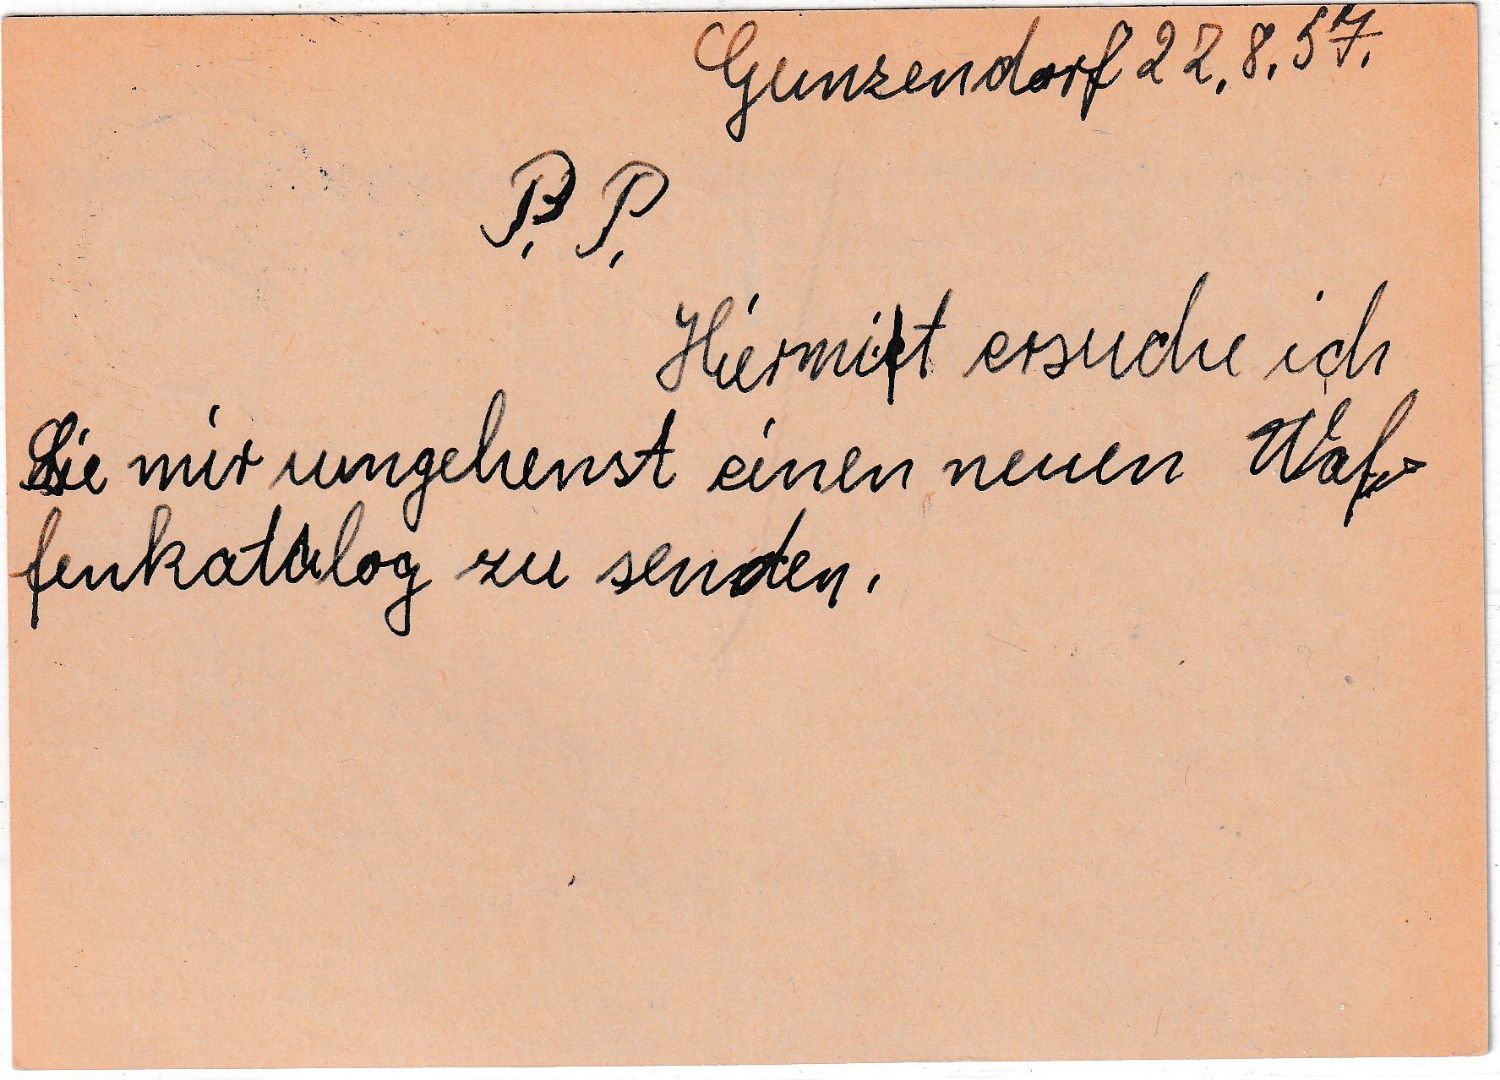 Gunzendorf 22.8.57.
P. P.
Hiermit ersuche ich
Sie mir umgehenst einen neuen Waf-
fenkatalog zu senden.